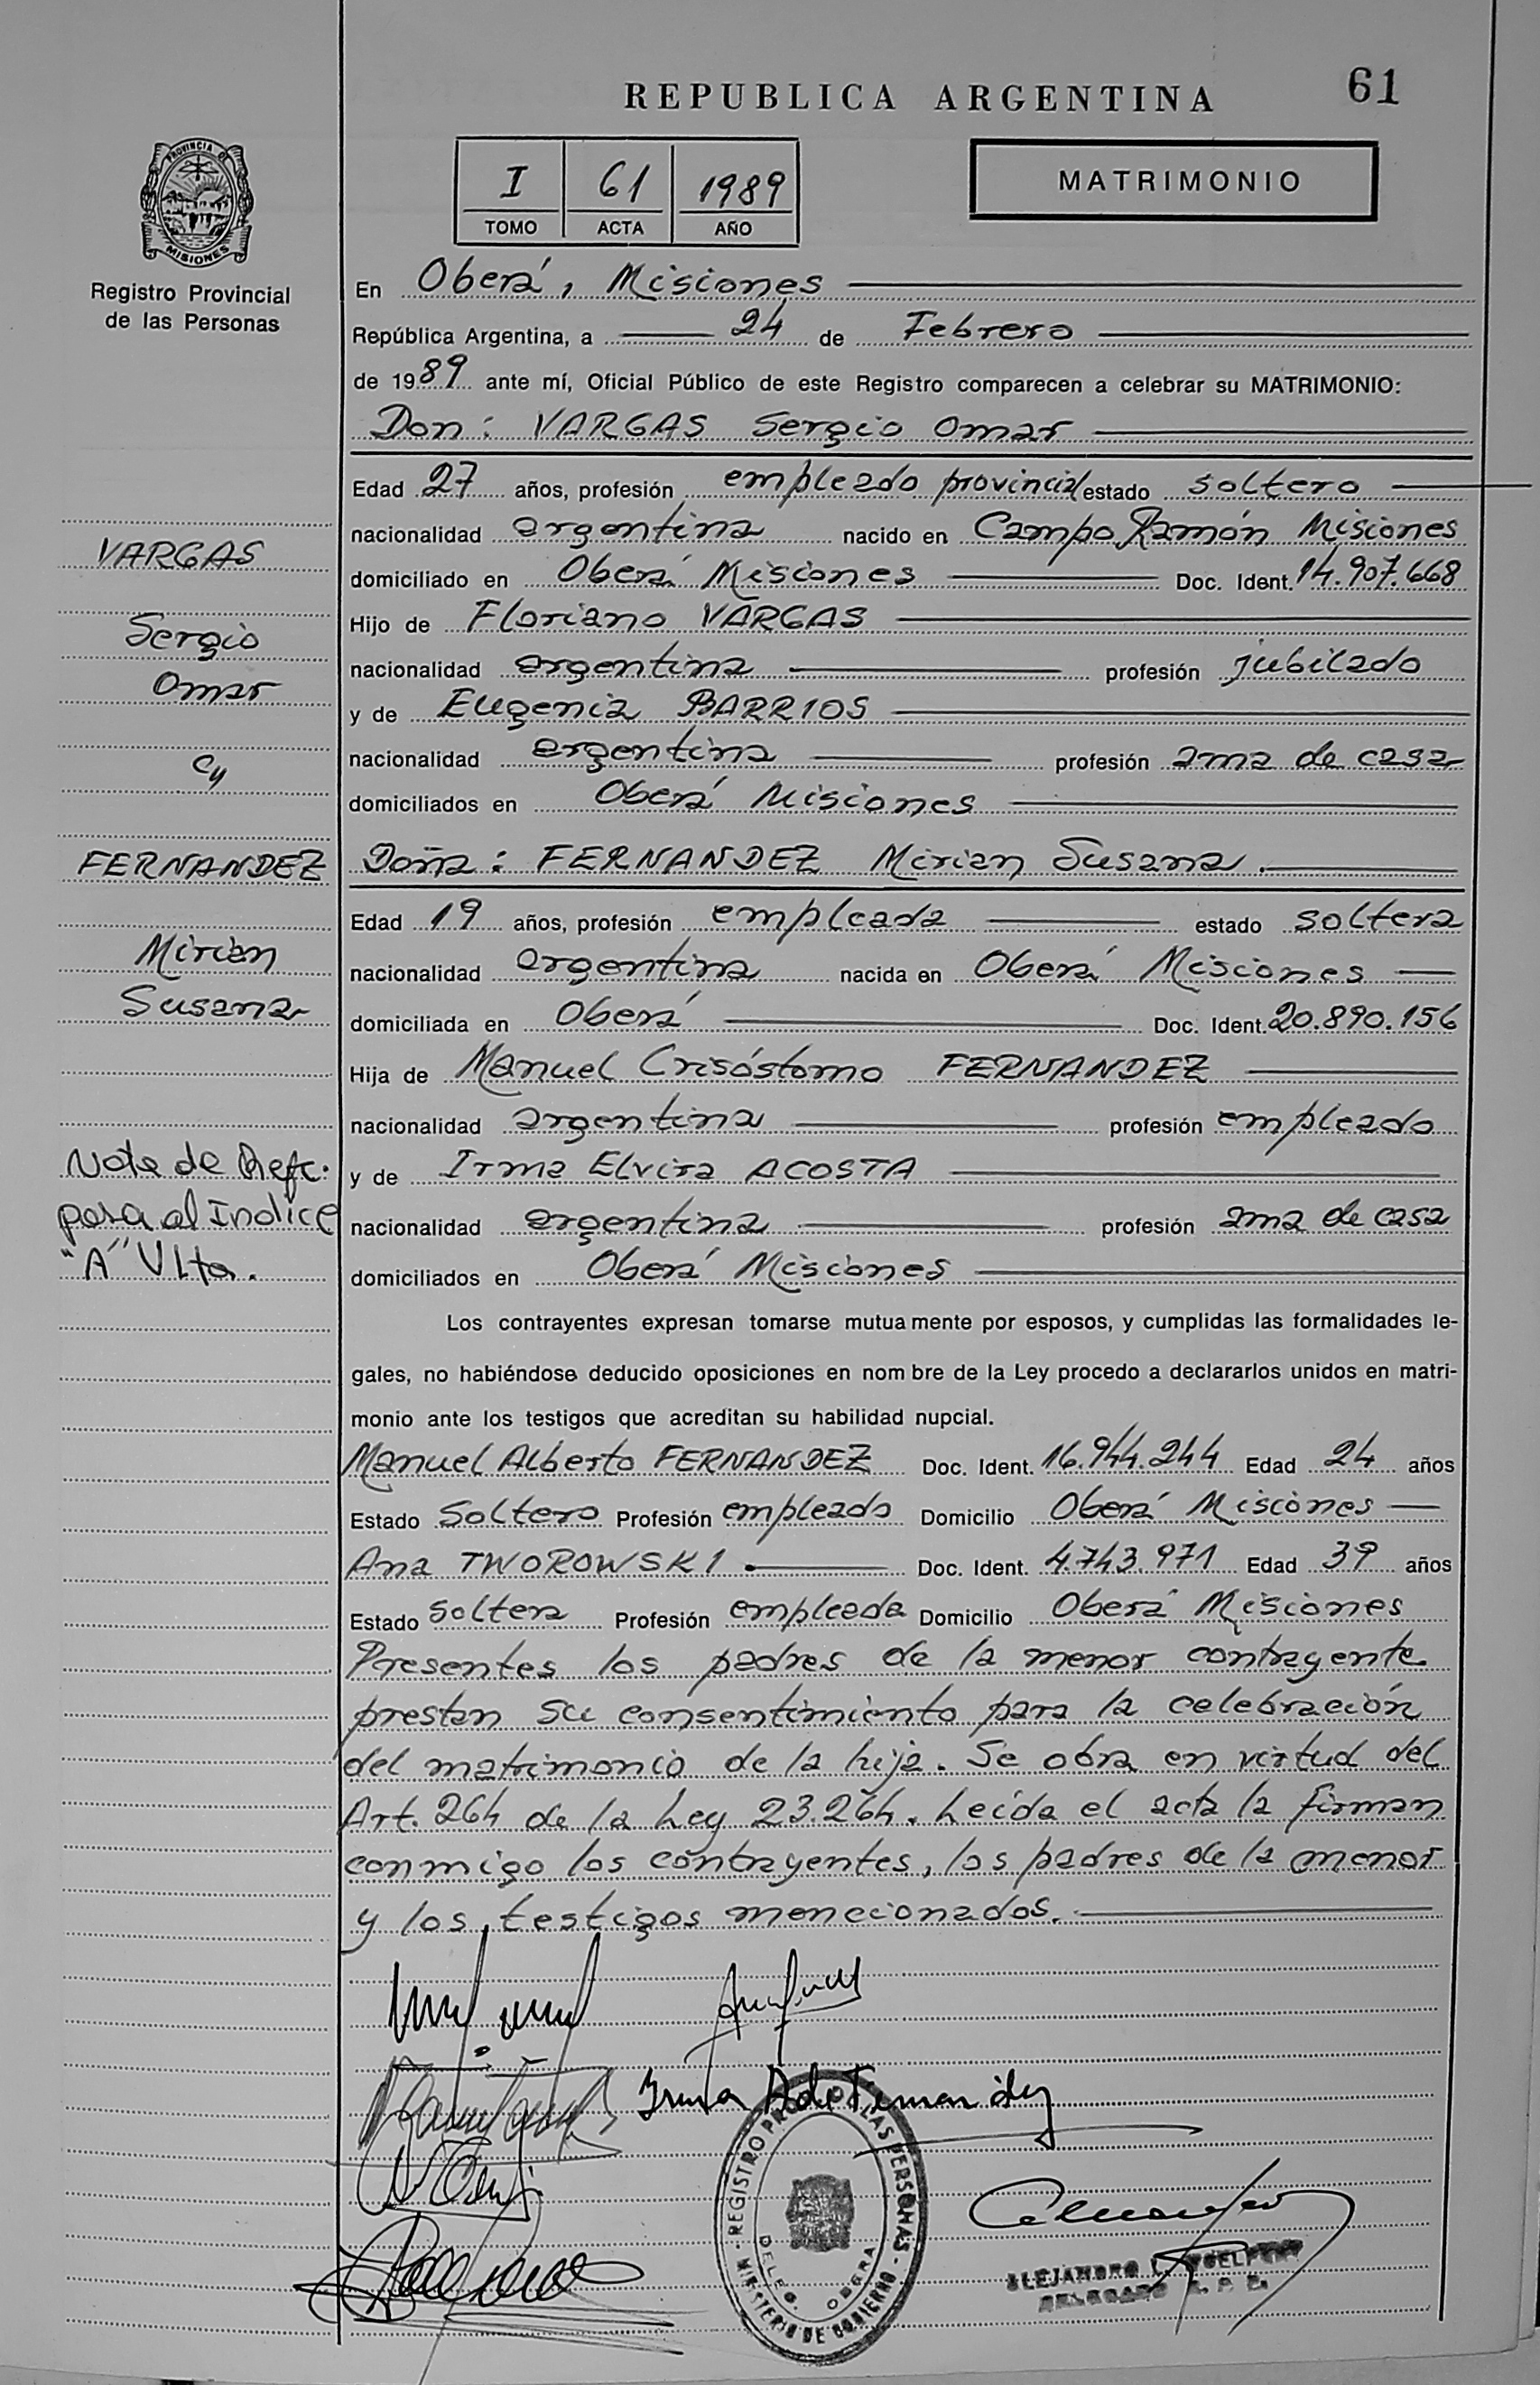 REPUBLICA ARGENTINA
61
PROVINCIA DE
MISIONES
Registro Provincial
de las Personas
I 61 1989
TOMO ACTA AÑO
MATRIMONIO
En Oberá, Misiones
República Argentina, a 24 de Febrero
de 1989 ante mí, Oficial Público de este Registro comparecen a celebrar su MATRIMONIO:
Don: VARGAS Sergio Omar
Edad 27 años, profesión empleado provincial estado soltero
nacionalidad argentina nacido en Campo Ramón Misiones
domiciliado en Oberá Misiones Doc. Ident. 14.907.668
Hijo de Floriano VARGAS
nacionalidad argentina profesión jubilado
y de Eugenia BARRIOS
nacionalidad argentina profesión ama de casa
domiciliados en Oberá Misiones
Doña: FERNANDEZ Mirian Susana.
Edad 19 años, profesión empleada estado soltera
nacionalidad argentina nacida en Oberá Misiones
domiciliada en Oberá Doc. Ident. 20.890.156
Hija de Manuel Crisóstomo FERNANDEZ
nacionalidad argentina profesión empleado
y de Irma Elvira ACOSTA
nacionalidad argentina profesión ama de casa
domiciliados en Oberá Misiones
VARGAS
Sergio
Omar
c/
FERNANDEZ
Mirian
Susana
Nota de Refc.
pasa al Indice
"A" Vlta.
Los contrayentes expresan tomarse mutuamente por esposos, y cumplidas las formalidades le-
gales, no habiéndose deducido oposiciones en nombre de la Ley procedo a declararlos unidos en matri-
monio ante los testigos que acreditan su habilidad nupcial.
Manuel Alberto FERNANDEZ Doc. Ident. 16.944.244 Edad 24 años
Estado Soltero Profesión empleado Domicilio Oberá Misiones
Ana TWOROWSKI Doc. Ident. 4.743.971 Edad 39 años
Estado soltera Profesión empleada Domicilio Oberá Misiones
Presentes los padres de la menor contrayente
prestan su consentimiento para la celebración
del matrimonio de la hija. Se obra en virtud del
Art. 264 de la Ley 23.264. Leída el acta la firman
conmigo los contrayentes, los padres de la menor
y los testigos mencionados.
Irma A de Fernandez
REGISTRO PROV. DE LAS PERSONAS
MINISTERIO DE GOBIERNO
DELEG. OBERA
ALEJANDRO
DELEGADO R. P. P.